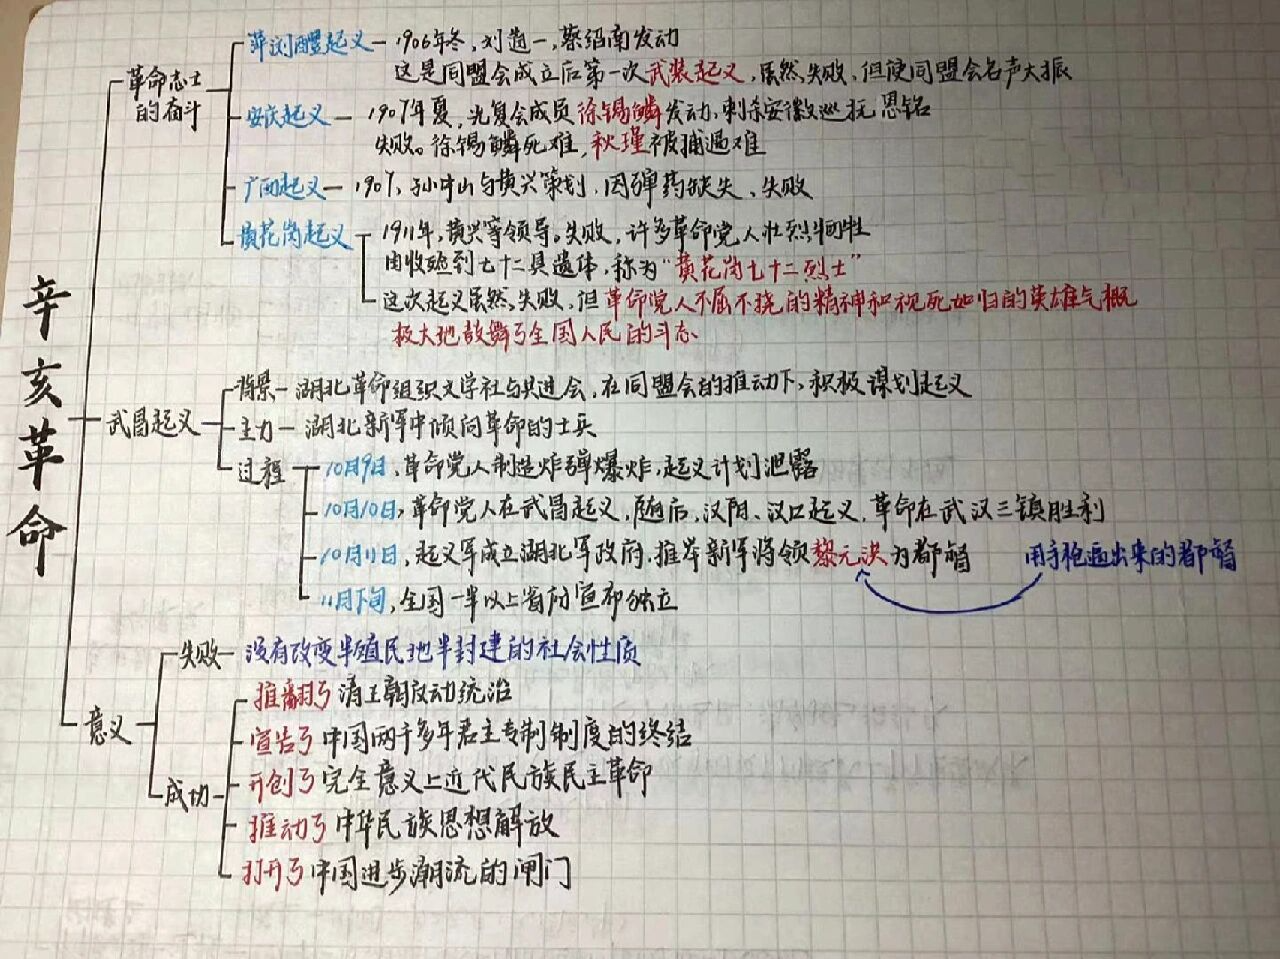 辛亥革命
革命志士
的奋斗
萍浏醴起义 — 1906年冬,刘道一,蔡绍南发动
这是同盟会成立后第一次武装起义,虽然失败,但使同盟会名声大振
安庆起义 — 1907年夏,光复会成员徐锡麟发动,刺杀安徽巡抚恩铭
失败。徐锡麟死难,秋瑾被捕遇难
广西起义 — 1907,孙中山与黄兴策划,因弹药缺失,失败
黄花岗起义
1911年,黄兴等领导。失败,许多革命党人壮烈牺牲
由收殓到七十二具遗体,称为“黄花岗七十二烈士”
这次起义虽然失败,但革命党人不屈不挠的精神和视死如归的英雄气概
极大地鼓舞了全国人民的斗志
武昌起义
背景 — 湖北革命组织文学社与共进会,在同盟会的推动下,积极谋划起义
主力 — 湖北新军中倾向革命的士兵
过程
10月9日,革命党人制造炸弹爆炸,起义计划泄露
10月10日,革命党人在武昌起义,随后,汉阳、汉口起义,革命在武汉三镇胜利
10月11日,起义军成立湖北军政府,推举新军将领黎元洪为都督 用手枪逼出来的都督
11月下旬,全国一半以上省份宣布独立
意义
失败 — 没有改变半殖民地半封建的社会性质
成功
推翻了清王朝反动统治
宣告了中国两千多年君主专制制度的终结
开创了完全意义上近代民族民主革命
推动了中华民族思想解放
打开了中国进步潮流的闸门